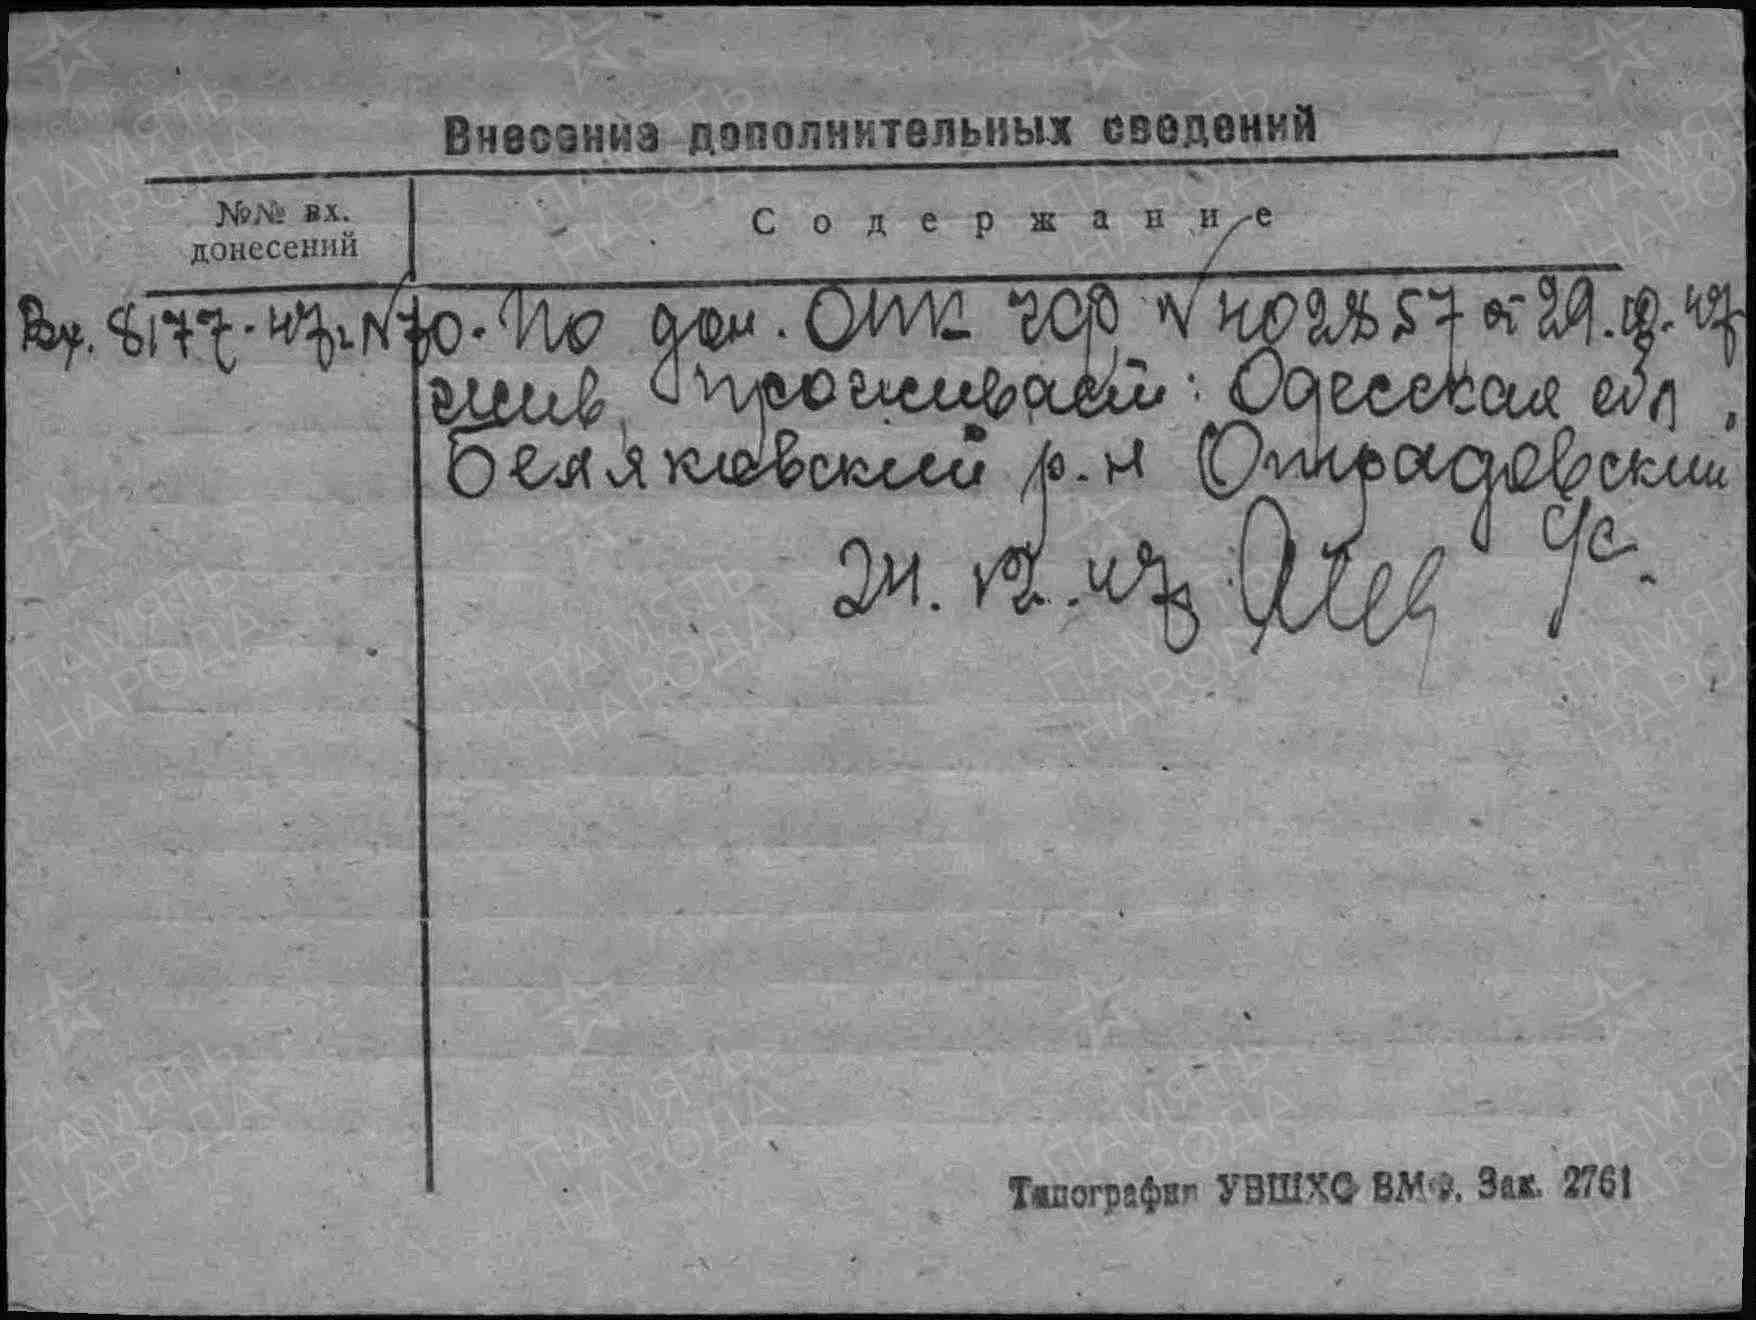 Внесение дополнительных сведений
№№ вх. донесений
Содержание
Вх. 8177-47г. N70. По дон. ОМК ЧСР N 402857 от 29.10.47
жив, проживает: Одесская обл,
Беляковский р.н Отрадовский
с/с.
24.12.47г
Типография УВШХС ВМС. Зак. 2761
ПАМЯТЬ НАРОДА